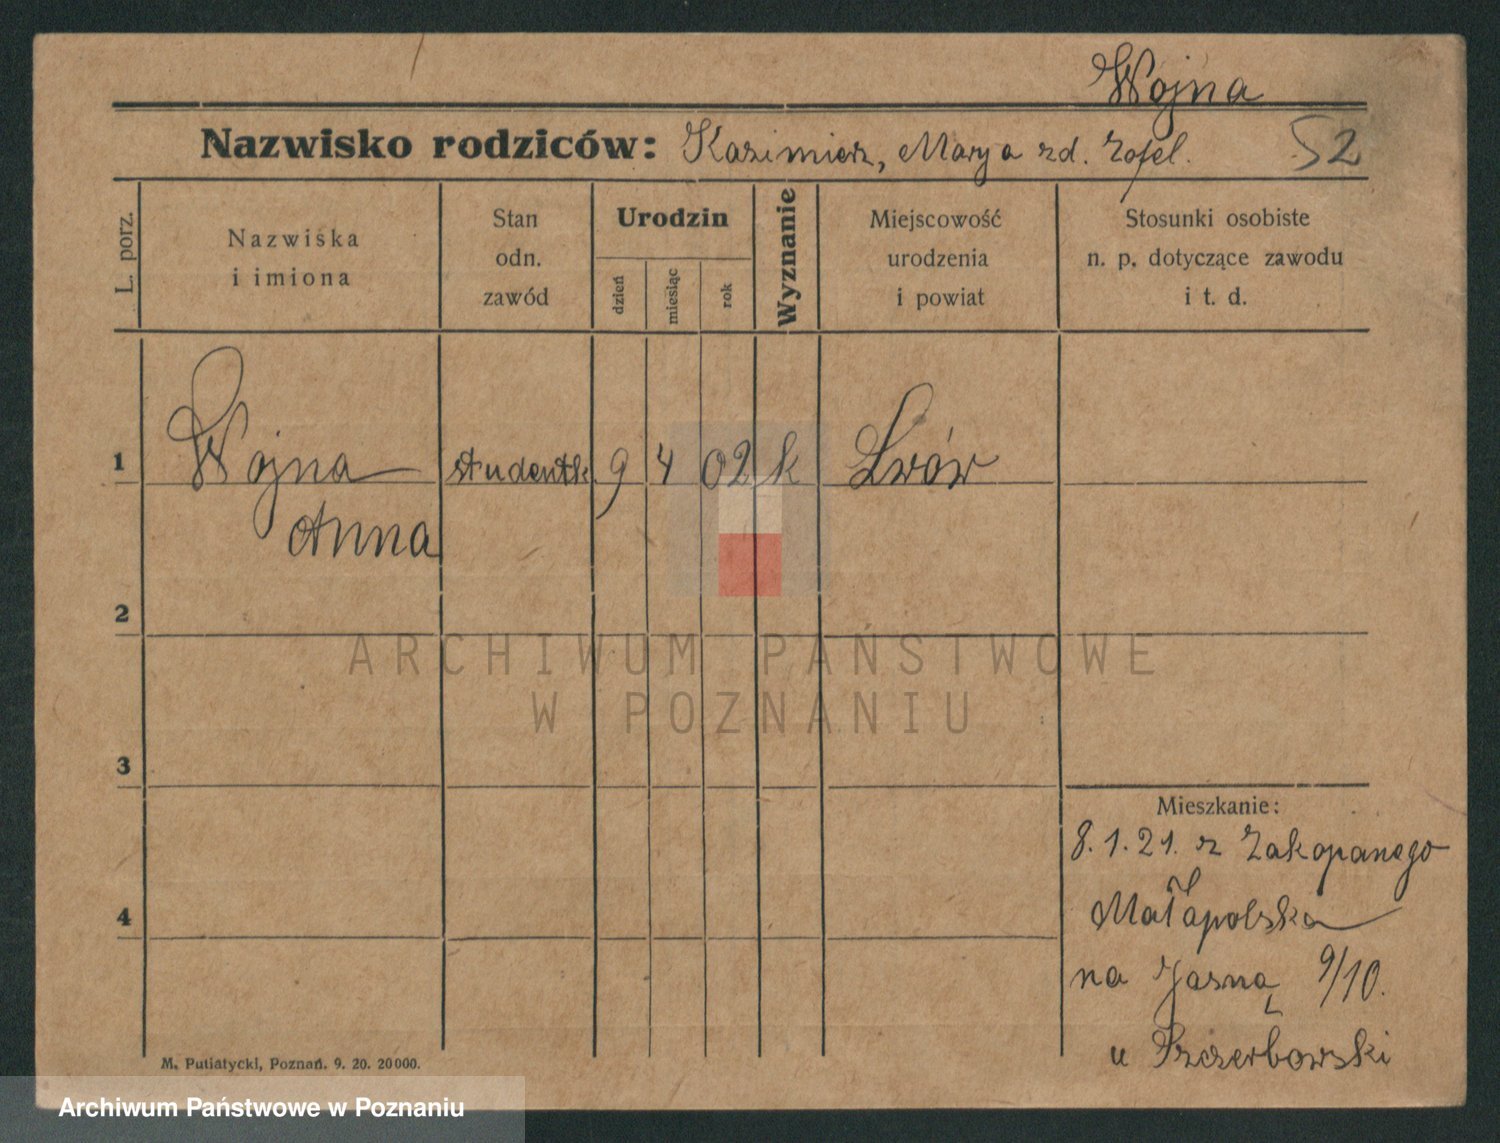 Wojna
Nazwisko rodziców: Kazimierz, Marya zd. Zofel. 52
L. porz.
Nazwiska
i imiona
Stan
odn.
zawód
Urodzin
dzień
miesiąc
rok
Wyznanie
Miejscowość
urodzenia
i powiat
Stosunki osobiste
n. p. dotyczące zawodu
i t. d.
1 Wojna studentk 9 4 02 k Lwów
Anna
2
ARCHIWUM PAŃSTWOWE
W POZNANIU
3
Mieszkanie:
8.1.21. z Zakopanego
4 Małapolska
na Jasną 9/10.
u Szczerbowski
M. Putiatycki, Poznań. 9. 20. 20000.
Archiwum Państwowe w Poznaniu